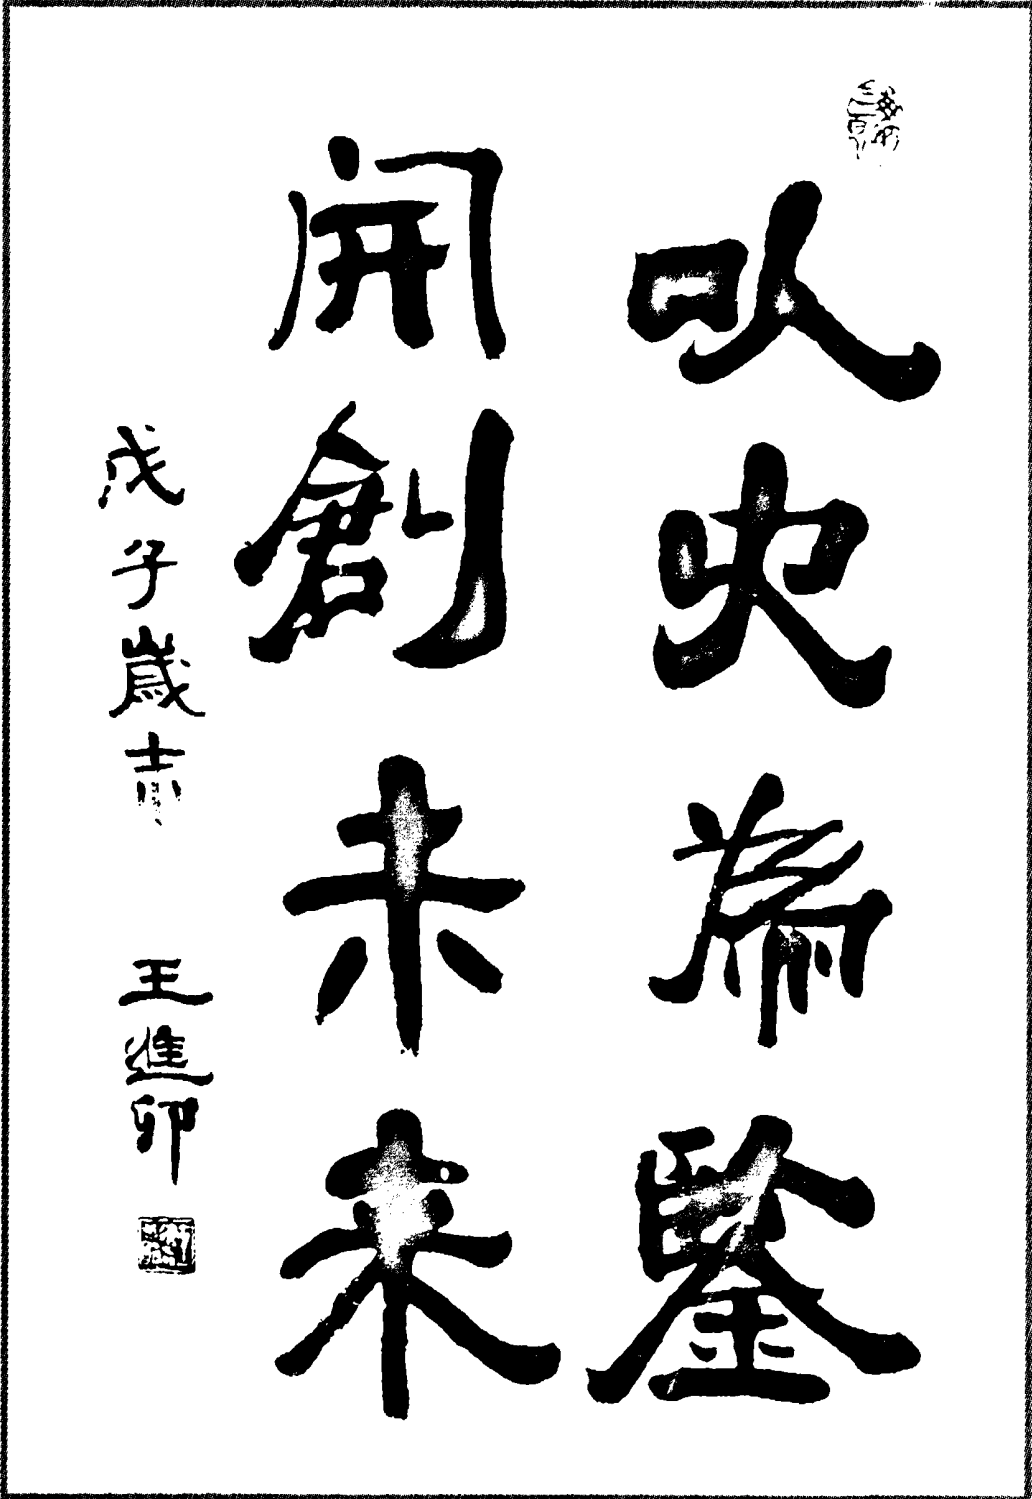 以史為鑒
開創未来
戊子歲末
王進卯